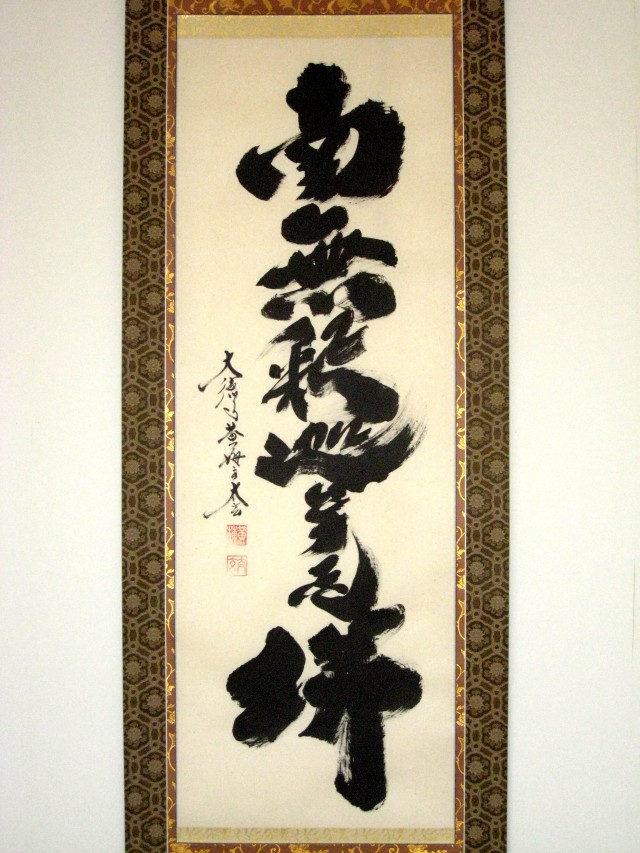 南無釈迦牟尼佛
大徳寺黄梅主太玄